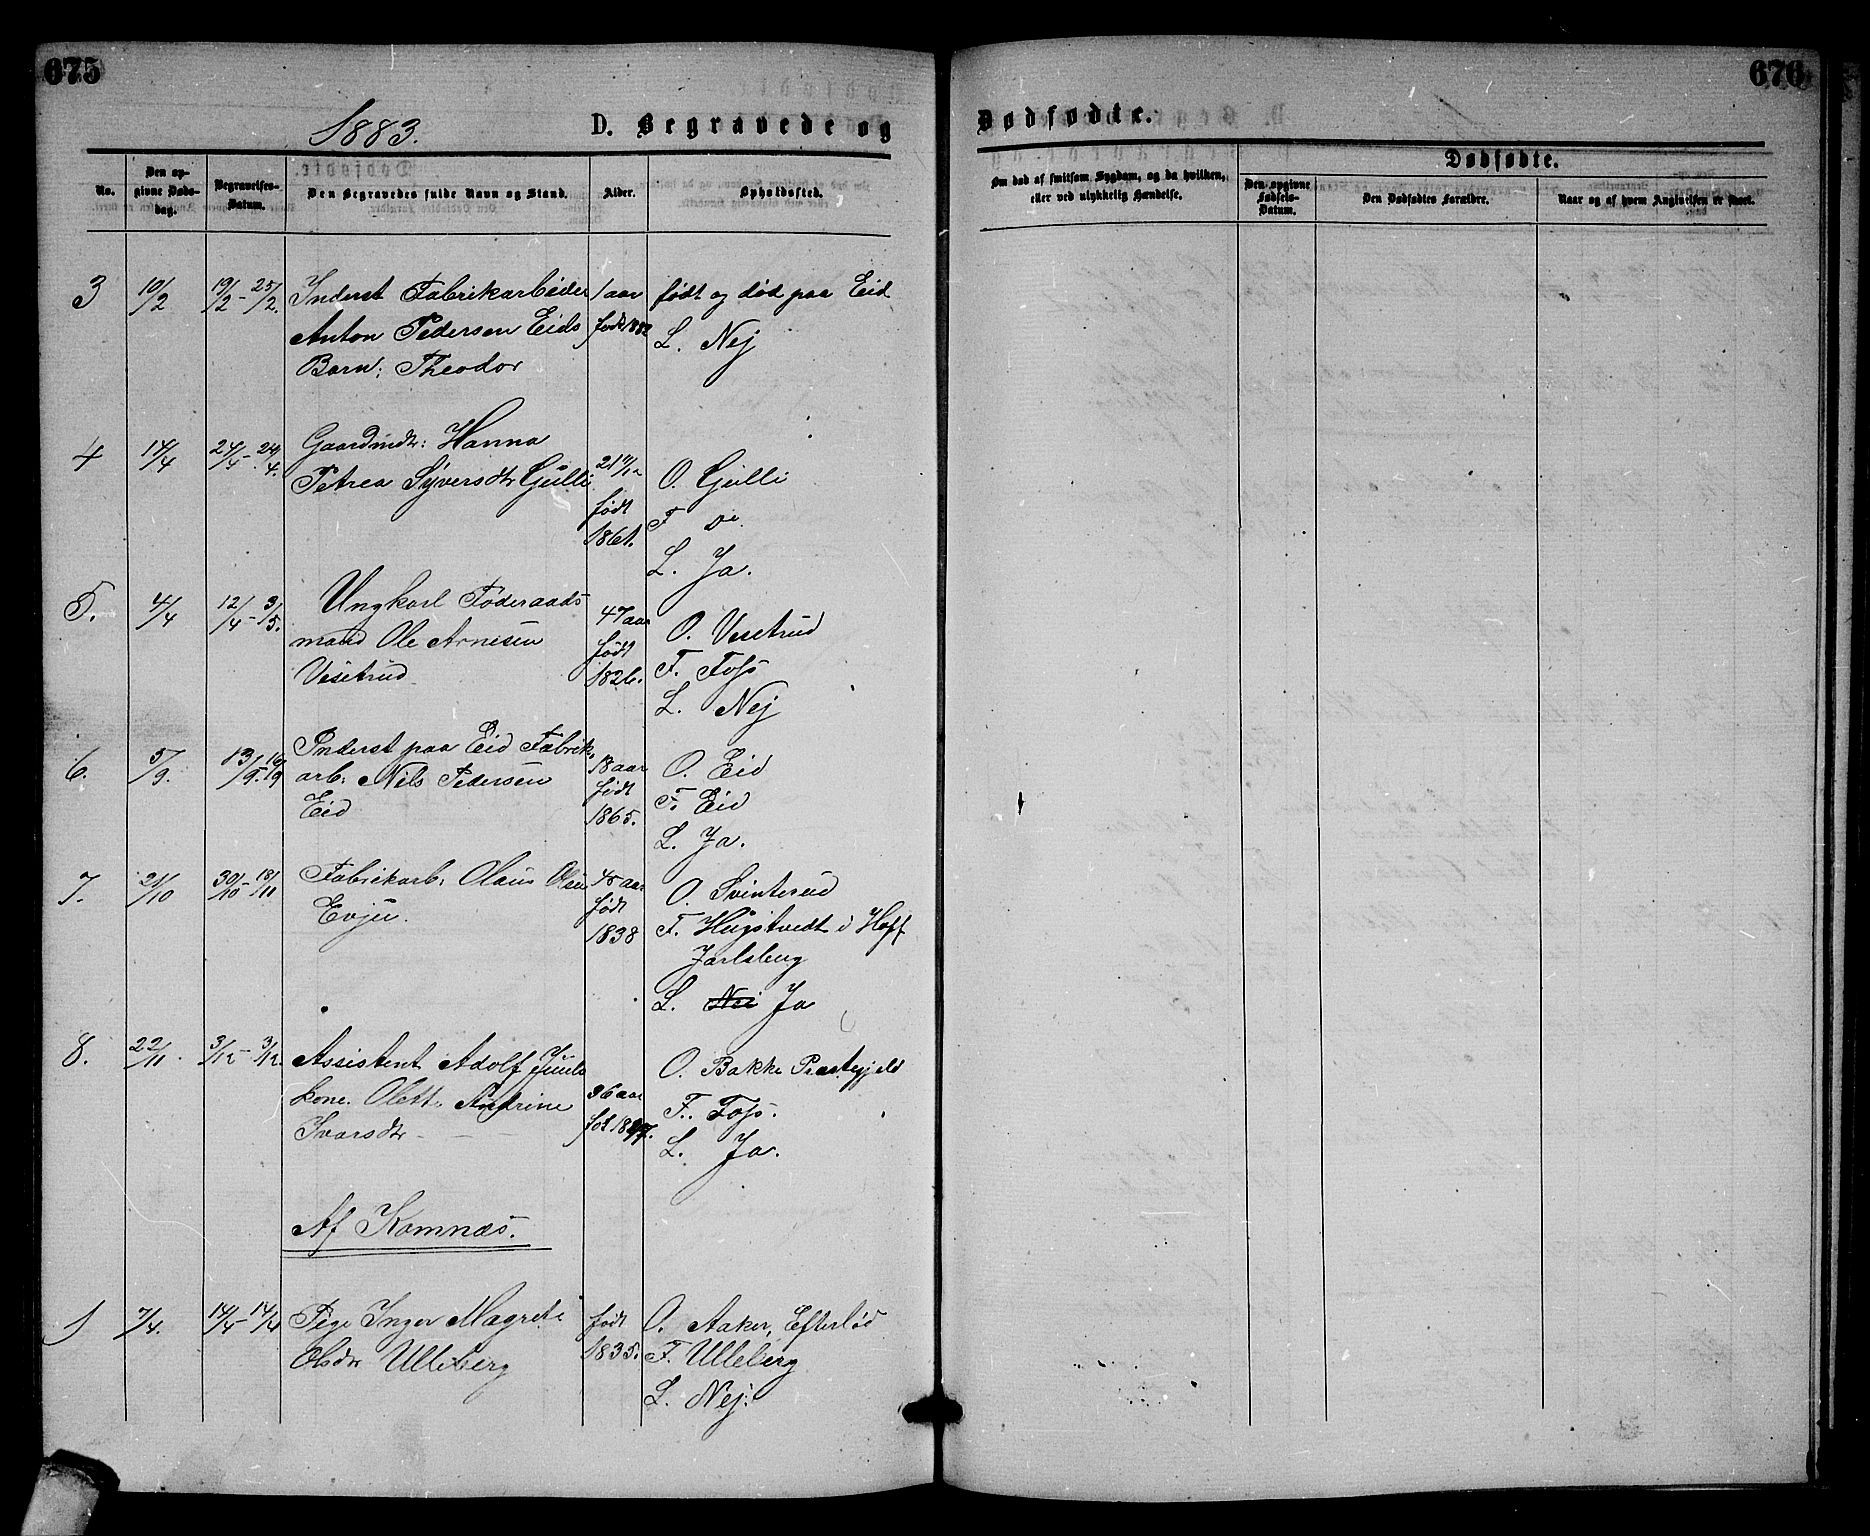 675
676
1883.
D. Begravede og Dødfødte.
No.
Den opgivne Dødsdag.
Begravelses-Datum.
Den Begravedes fulde Navn og Stand.
Alder.
Opholdssted.
Om død af smitsom Sygdom, og da hvilken,
eller ved ulykkelig Hændelse.
Dødfødte.
Den opgivne Fødsels-Datum.
Den Dødfødtes Forældre.
Naar og af hvem Angivelsen er skeet.
3 10/2 19/2 - 25/2. Inderst Fabrikarbeider 1 aar født og død paa Eid
Anton Pedersen Eids født 1882 L. Nej
Barn: Theodor
4 17/4 24/4 - 24/4. Gaardmdtr: Hanna
Petrea Syversdtr Gulli 21 11/12 O. Gulli
født F. Do
1861. L. Ja.
5. 4/4 12/4 - 3/5. Ungkarl Føderaads 47 aar
mand Ole Arnesen født O. Vesetrud
Vesetrud 1826. F. Foss
L. Nej
6. 5/9. 13/9. 16/9 Inderst paa Eid Fabrik
arb: Nils Pedersen 18 aar O. Eid
Eid født F. Eid
1865. L. Ja.
7. 21/10 30/10 - 18/11 Fabrikarb: Olaus Olsen 45 aar O. Svinterud
Evju. født F. Hugstvedt i Hoff
1838 Jarlsberg
L. Nei Ja
8. 22/11. 3/12 - 3/12. Assistent Adolf Juuls O. Bakke Præstegjeld
kone. Olett. Andrine 36 aar F. Foss.
Ivarsdtr født 1847. L. Ja.
Af Komnæs.
1 7/4. 14/4 - 14/4 Pige Inger Magrete født O. Aaker, Efterlød
Olsdtr Ulleberg 1835. F. Ulleberg
L. Nej.